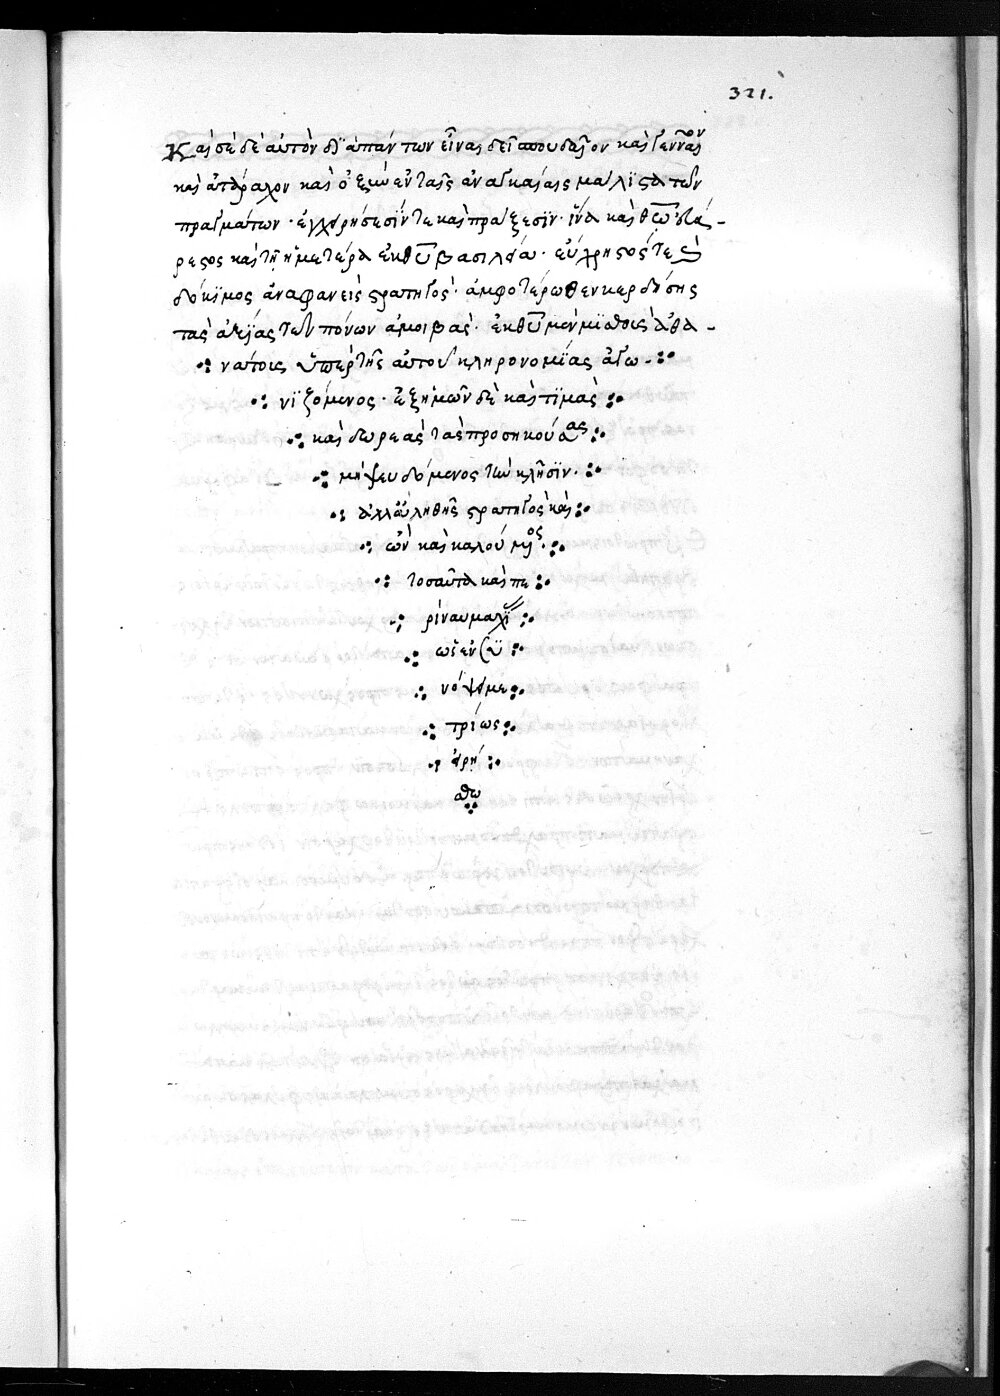 321.
Καὶ σὲ δὲ αὐτὸν δϊ ἁπάντων εἶναι δεῖ σπουδαῖον καὶ γενναῖον
καὶ ἀτάραχον καὶ ὀξὺν ἐν ταῖς ἀναγκαίαις μάλιστα τῶν
πραγμάτων · ἐγχειρήσεσΐν τε καὶ πράξεσϊν · ἵνα καὶ θῶ εὐά-
ρεστος καὶ τῇ ἡμετέρα ἐκ θῦ βασιλεία · εὔχρηστός τε καὶ
δόκϊμος ἀναφανεὶς στρατηγὸς · ἀμφοτέρωθεν κερδήσης
τὰς ἀξίας τῶν πόνων ἀμοιβὰς · ἐκ θῦ μὲν μϊσθοῖς ἀθα-
νάτοις ὑπὲρ τῆς αὐτοῦ κληρονομϊας ἀγω-
νϊζόμενος · ἐξ ἡμῶν δὲ καὶ τϊμὰς
καὶ δωρεὰς τὰς προσηκούσας
μὴ ψευδόμενος τὴν κλῆσϊν ·
ἀλλ' ἀληθὴς στρατηγὸς καὶ
ὢν καὶ καλούμενος ·
τοσαῦτα καὶ πε
ρὶ ναυμαχϊ
ας ἐν συ
νόψει με
τρίως
εἰρή
σθω